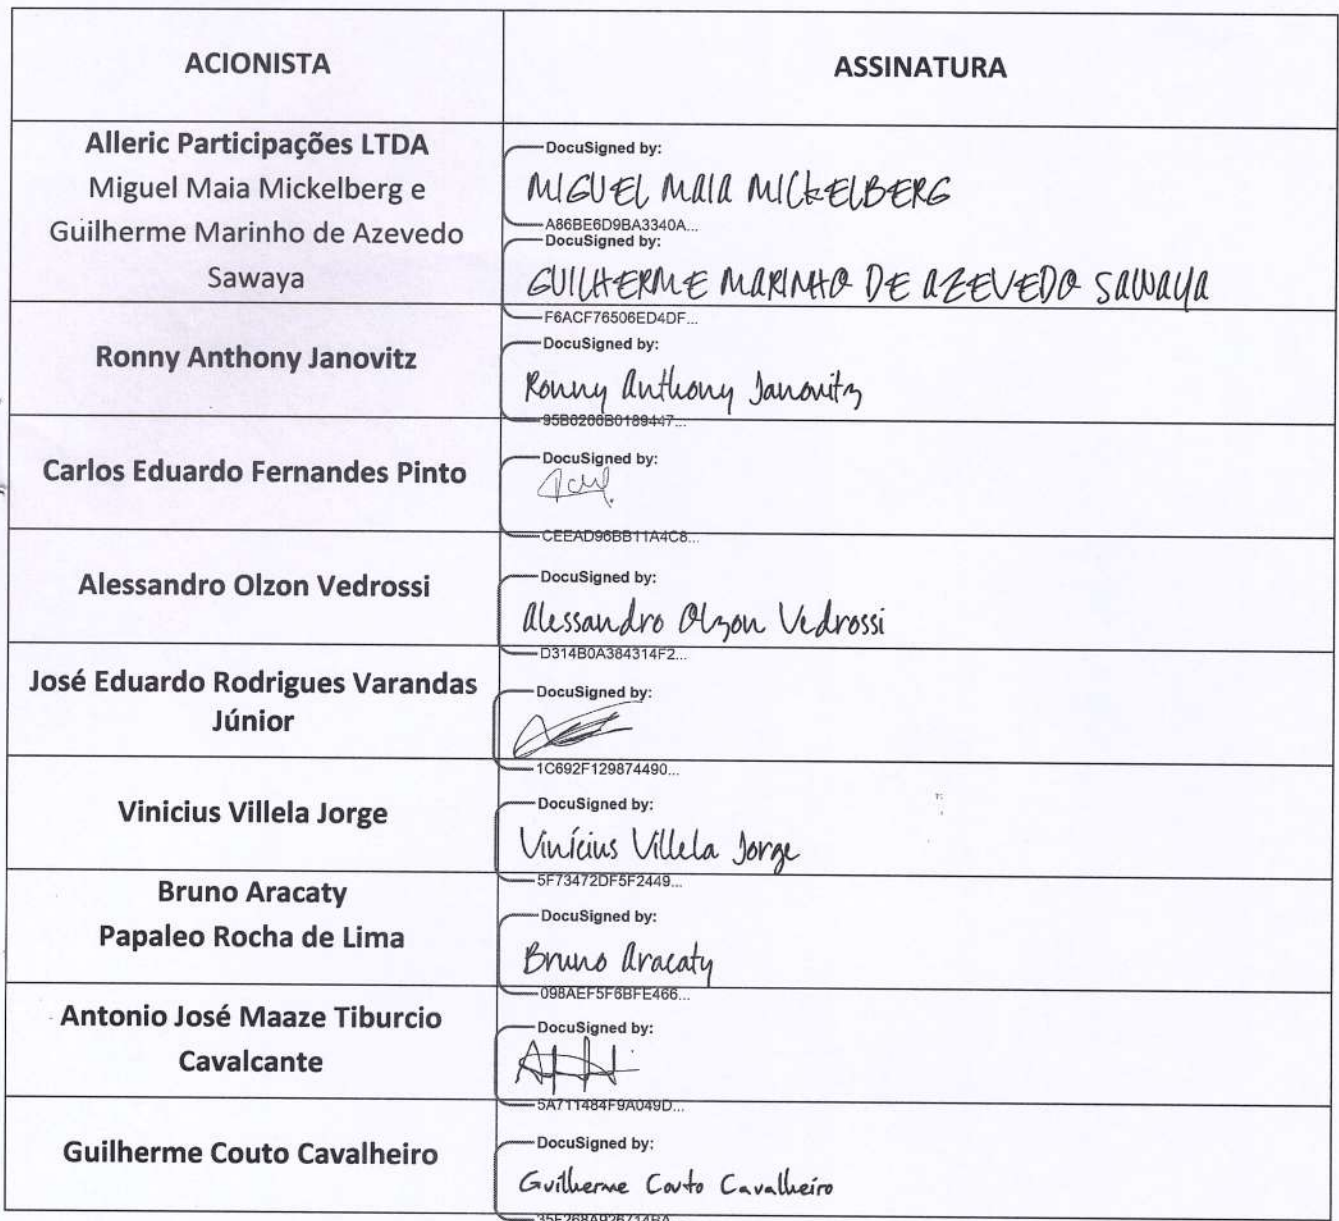 ACIONISTA
ASSINATURA
Alleric Participações LTDA
Miguel Maia Mickelberg e
Guilherme Marinho de Azevedo
Sawaya
DocuSigned by:
MIGUEL MAIA MICKELBERG
A86BE6D9BA3340A...
DocuSigned by:
GUILHERME MARINHO DE AZEVEDO SAWAYA
F6ACF76506ED4DF...
Ronny Anthony Janovitz
DocuSigned by:
Ronny Anthony Janovitz
95B0200B0189447...
Carlos Eduardo Fernandes Pinto
DocuSigned by:
CEEAD96BB11A4C8...
Alessandro Olzon Vedrossi
DocuSigned by:
Alessandro Olzon Vedrossi
D314B0A384314F2...
José Eduardo Rodrigues Varandas
Júnior
DocuSigned by:
1C692F129874490...
Vinicius Villela Jorge
DocuSigned by:
Vinícius Villela Jorge
5F73472DF5F2449...
Bruno Aracaty
Papaleo Rocha de Lima
DocuSigned by:
Bruno Aracaty
098AEF5F6BFE466...
Antonio José Maaze Tiburcio
Cavalcante
DocuSigned by:
5A711484F9A049D...
Guilherme Couto Cavalheiro
DocuSigned by:
Guilherme Couto Cavalheiro